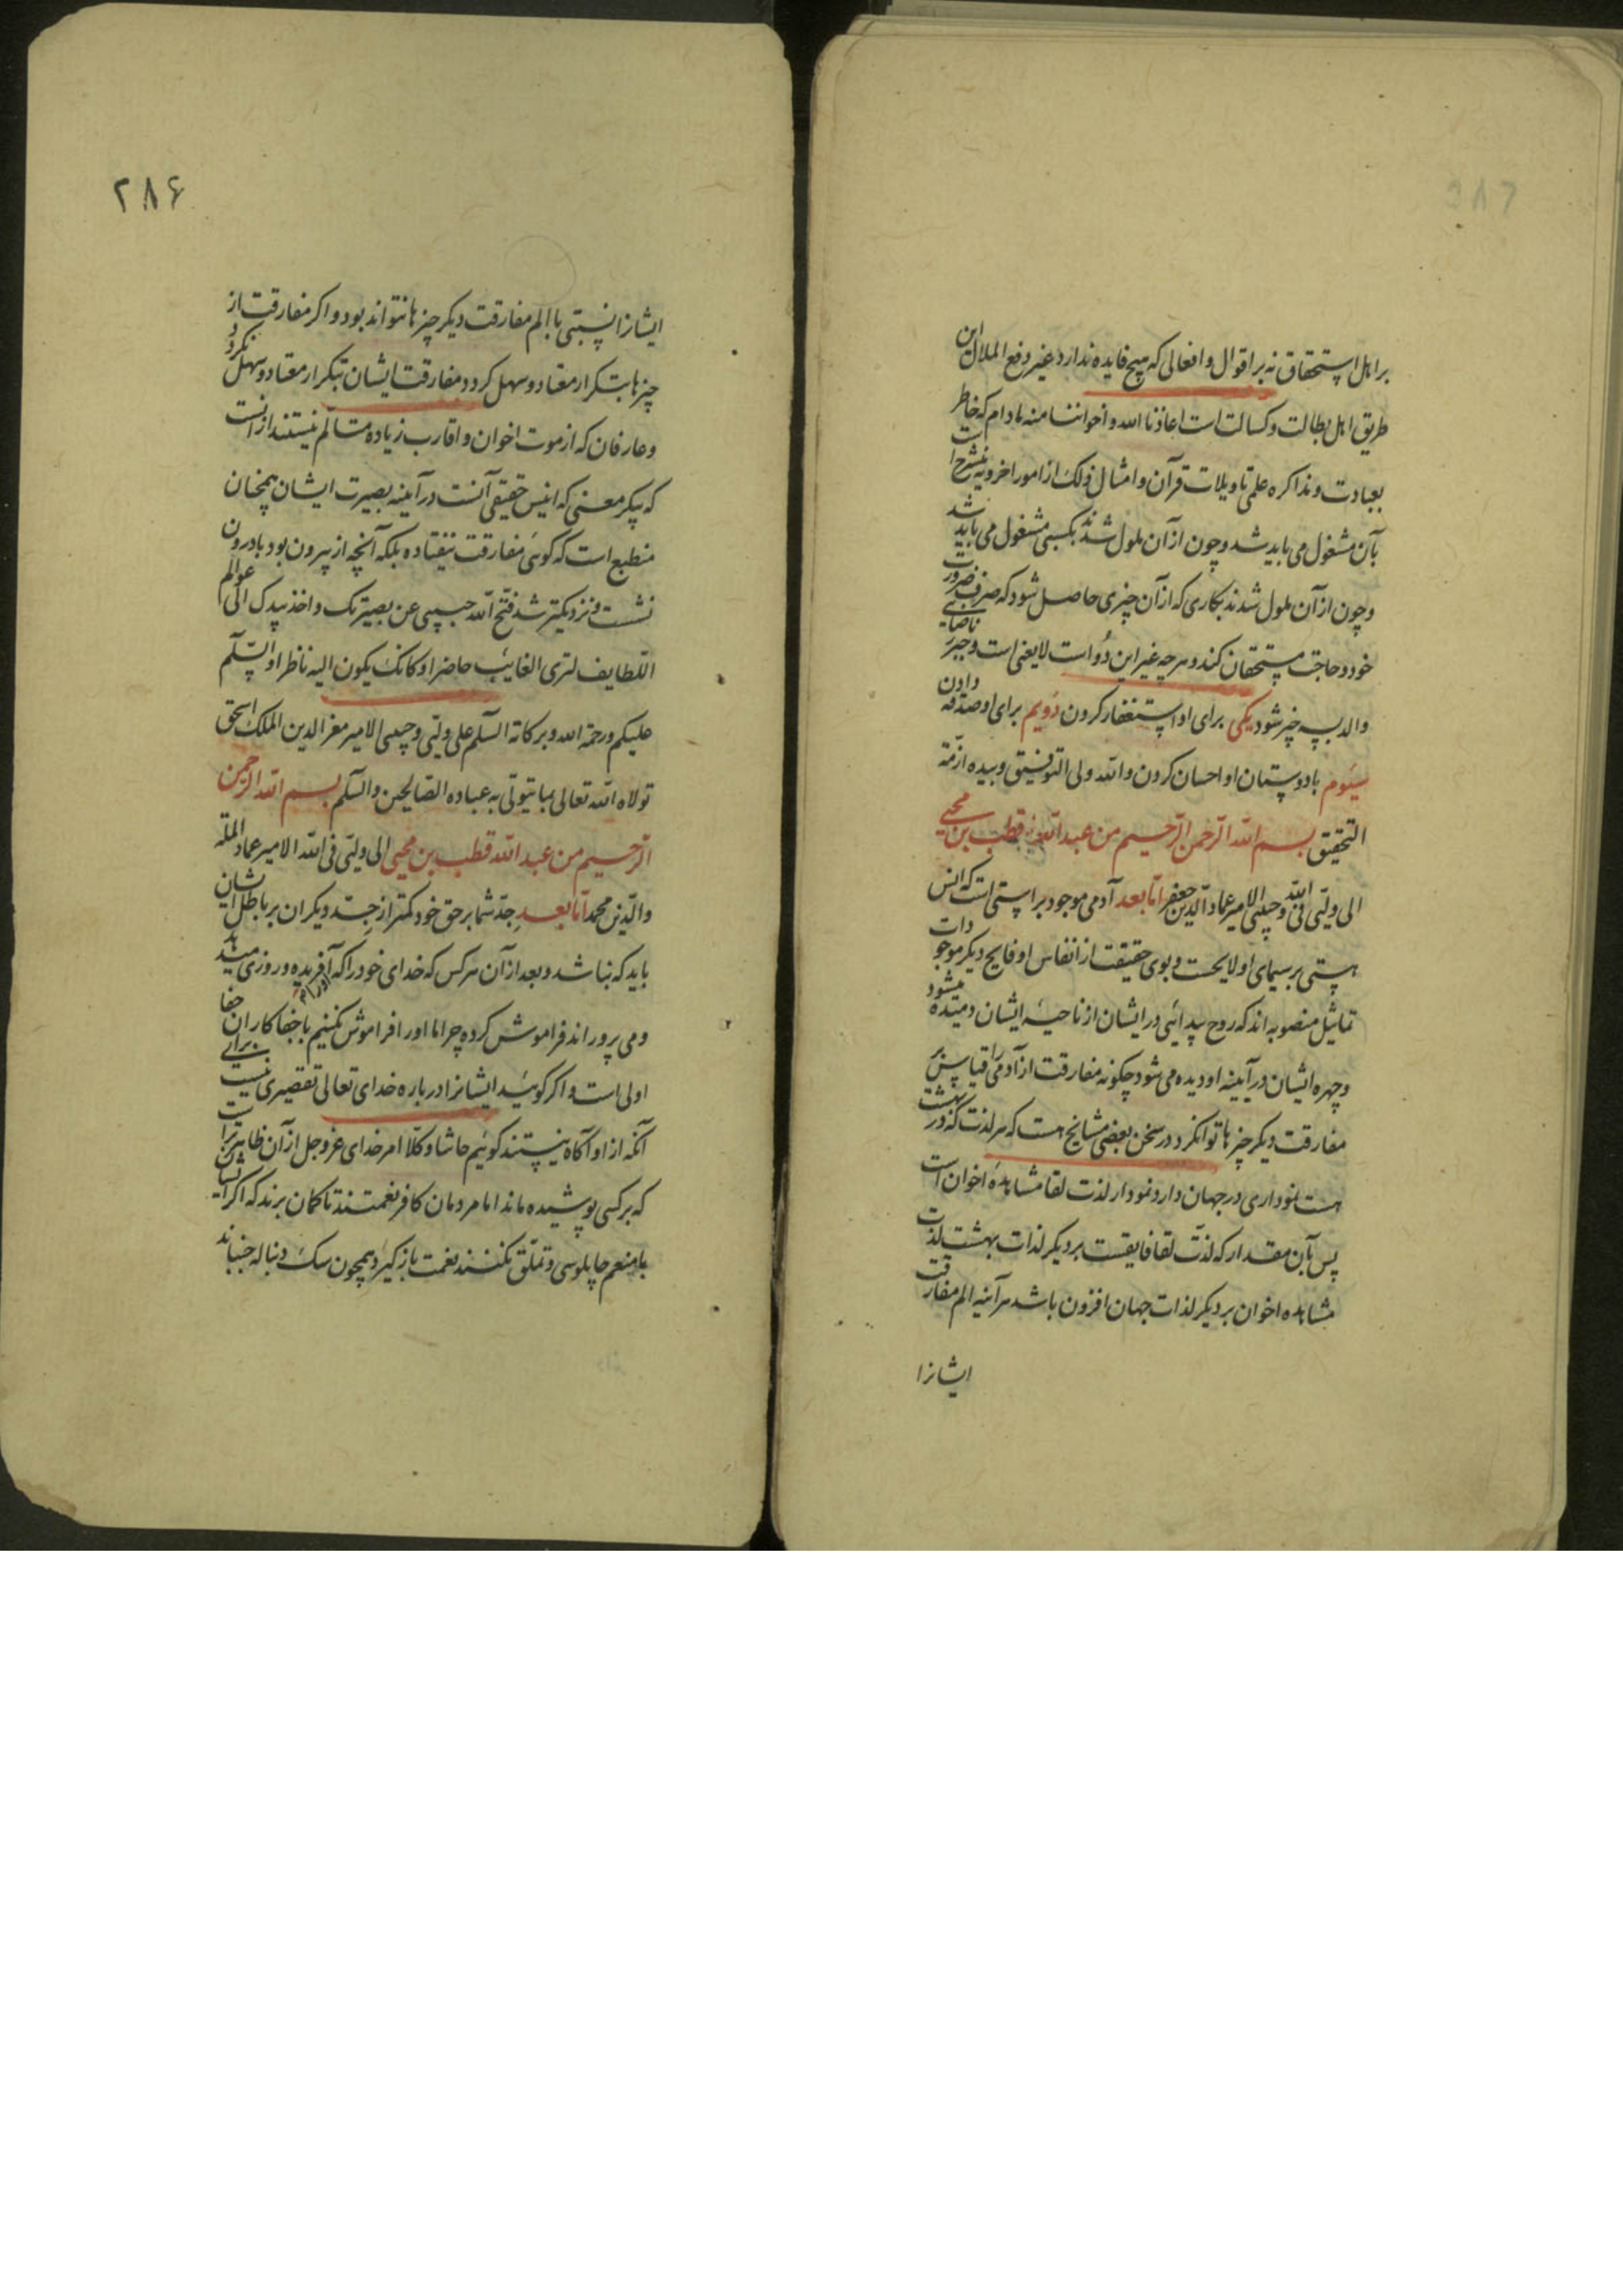 بر اهل استحقاق نه بر اقوال و افعالی که هیچ فایده ندارد غیر دفع الملال این
طریق اهل بطالت و کسالت است اعاذنا الله و اخواننا منه مادام که خاطر
بعبادت و مذاکره علمی تاویلات قرآن و امثال ذلک از امور اخرویه منشرح است
بآن مشغول می باید شد و چون از آن ملول شدند بکسبی مشغول می باید شد
و چون از آن ملول شدند بکاری که از آن چیزی حاصل شود که صرف ضرورت
خود و حاجت مستحقان کند و هر چه غیر این دو است لایعنی است و جبر ناصابی
والد بسه چیز شود یکی برای او استغفار کردن دویم برای او صدقه دادن
سیوم با دوستان او احسان کردن و الله ولی التوفیق و بیده ازمة
التحقیق بسم الله الرحمن الرحیم من عبد الله قطب بن محیی
الی ولیی فی الله و حبیبی الامیر عماد الدین جعفر اما بعد آدمی موجود براستی است که انس
هستی بر سیمای او لایحست و بوی حقیقت از انفاس او فایح دیگر موجودات
تماثیل منصوبه اند که روح پیدائی در ایشان از ناحیهٔ ایشان دمیده میشود
و چهره ایشان در آیینه او دیده می شود چگونه مفارقت از آدمی را قیاس بر
مفارقت دیگر چیزها توانکرد در سخن بعضی مشایخ هست که هر لذت که در بهشت
هست نموداری در جهان دارد نمودار لذت لقا مشاهدهٔ اخوان است
پس بآن مقدار که لذت لقا فایقست بر دیگر لذات بهشت لذت
مشاهده اخوان بر دیگر لذات جهان افزون باشد هر آینه الم مفارقت
ایشانرا
۲۸۶
ایشانرا نسبتی با الم مفارقت دیگر چیزها نتواند بود و اگر مفارقت از
چیزها بتکرار معتاد و سهل گردد مفارقت ایشان بتکرار معتاد و سهل نگردد
و عارفان که از موت اخوان و اقارب زیاده متالم نیستند از آنست
که پیکر معنی که انیس حقیقی آنست در آیینه بصیرت ایشان همچنان
منطبع است که گوئی مفارقت نیفتاده بلکه آنچه از بیرون بود بادرون
نشست و نزدیکتر شد فتح الله حبیبی عن بصیرتک و اخذ بیدک الی عوالم
اللطایف لتری الغایب حاضرا و کانک یکون الیه ناظرا و السلم
علیکم و رحمة الله و برکاته السلم علی ولیی و حبیبی الامیر معز الدین الملک اسحق
تولاه الله تعالی بما یتولی به عباده الصالحین و السلم بسم الله الرحمن
الرحیم من عبد الله قطب بن محیی الی ولیی فی الله الامیر عماد الملة
و الدین محمد اما بعد جد شما بر حق خود کمتر از جد دیگران بر باطل ایشان
باید که نباشد و بعد از آن هر کس که خدای خود را که آفریده و روزی میدهد
و می پروراند فراموش کرده چرا ما او را فراموش نکنیم با جفاکاران جفا
اولی است و اگر گوئید ایشانرا در باره خدای تعالی تقصیری نیست برای
آنکه از او آگاه نیستند گوئیم حاشا و کلا امر خدای عز و جل از آن ظاهرتر است
که بر کسی پوشیده ماند اما مردمان کافر نعمتند تا گمان برند که اگر ایشان
با منعم چاپلوسی و تملق نکنند نعمت بازگیرد همچون سگ دنباله جنباند